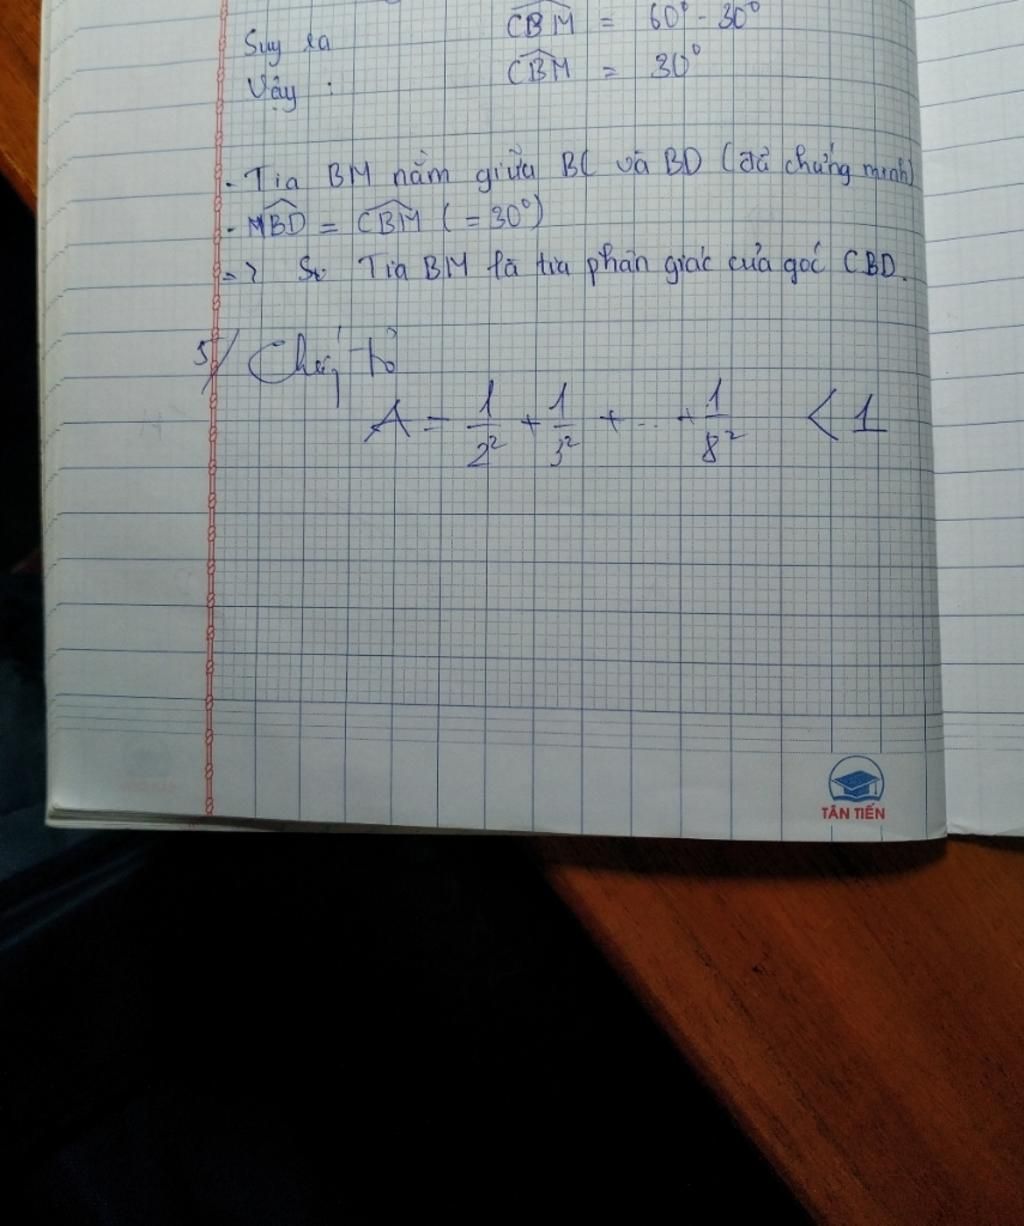 Suy ra CBM = 60° - 30°
Vậy : CBM = 30°
- Tia BM nằm giữa BC và BD (đã chứng minh)
- MBD = CBM (= 30°)
=> Tia BM là tia phân giác của góc CBD.
5/ Chứng tỏ
A = 1/2² + 1/3² + ... + 1/8² < 1
TÂN TIẾN